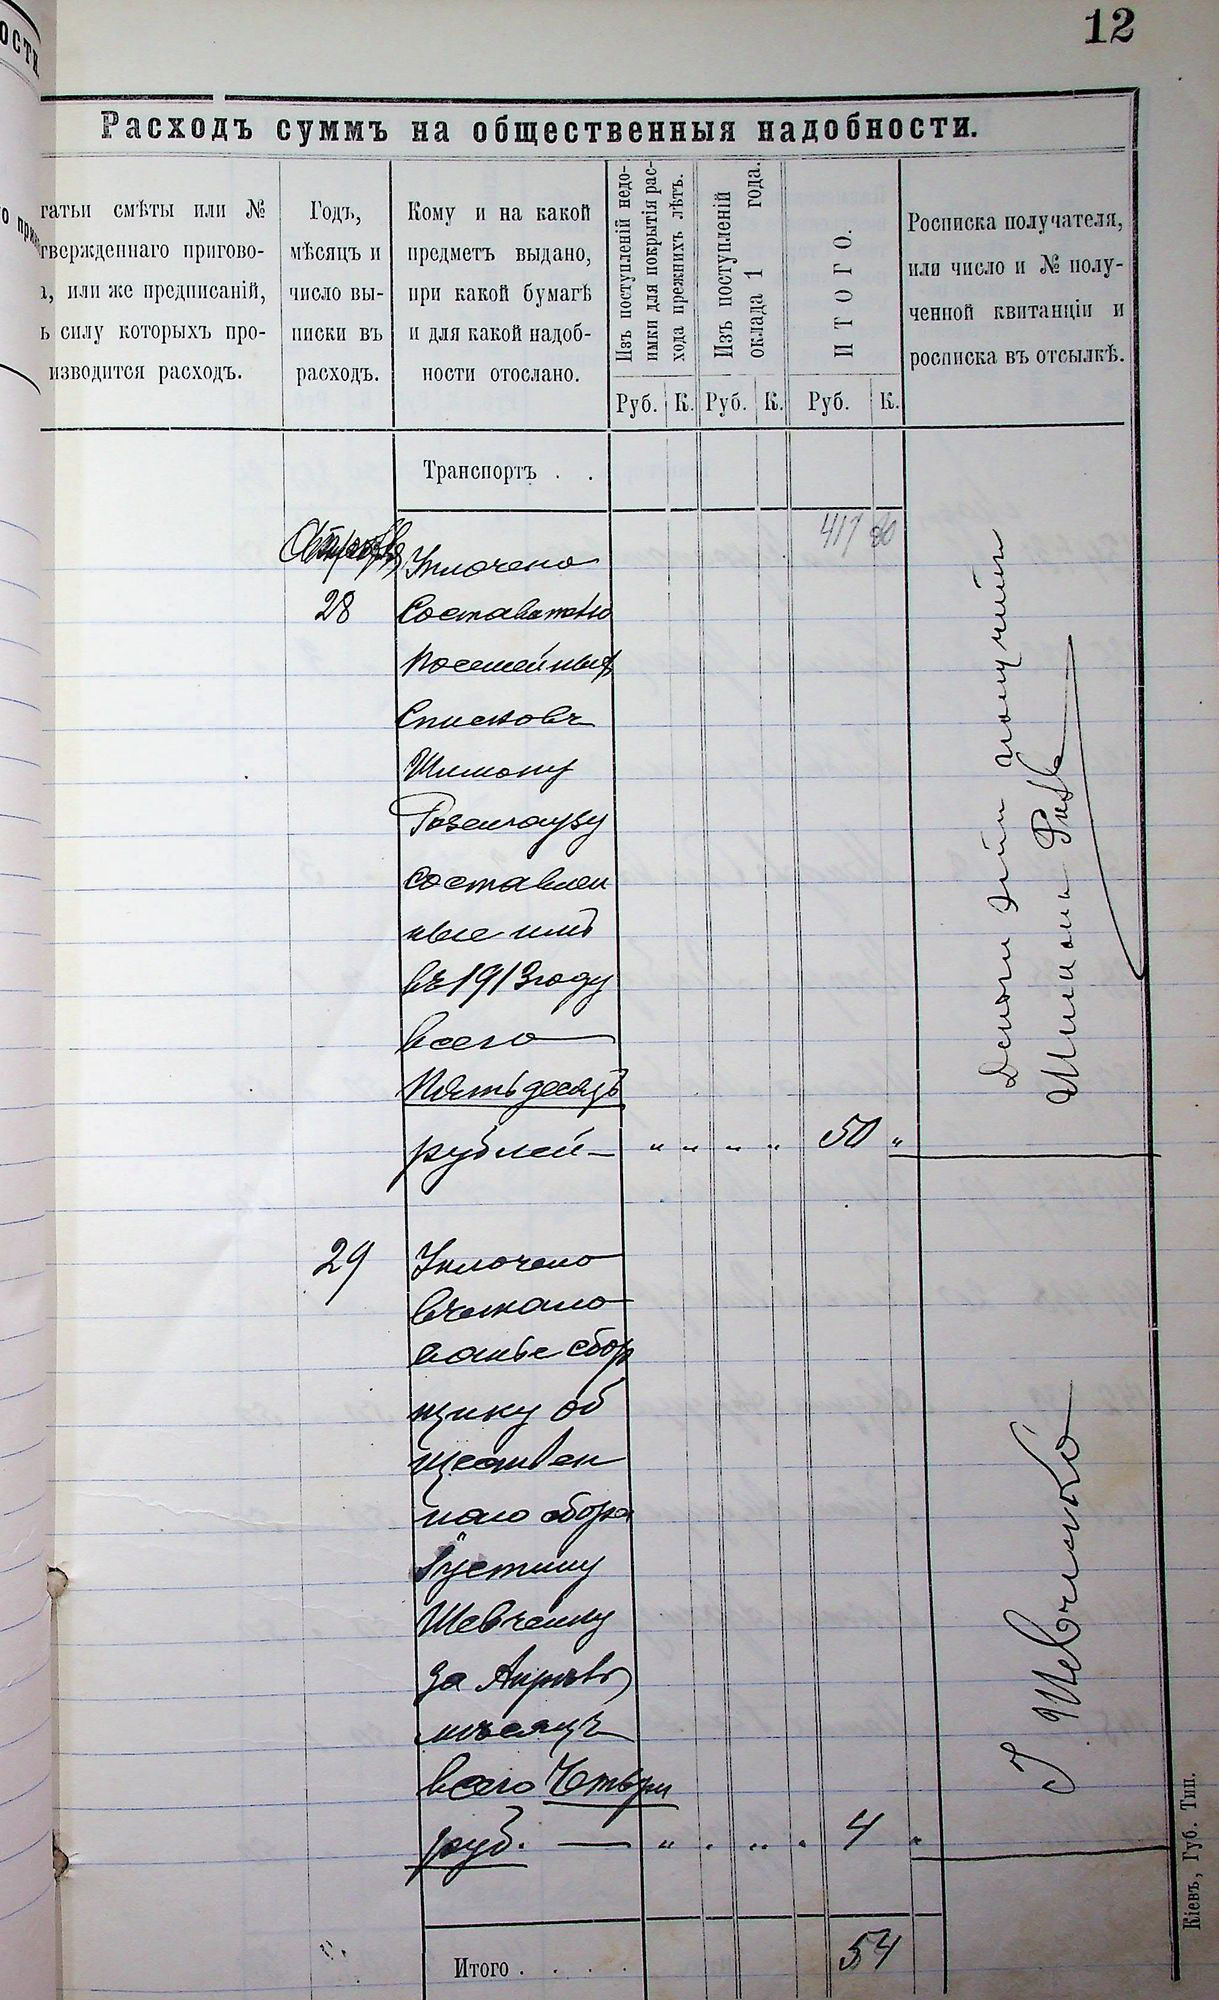 12
ОСТИ
Расходъ суммъ на общественныя надобности.
гатьи смѣты или №
твержденнаго пригово-
а, или же предписаній,
ь силу которыхъ про-
изводится расходъ.
Годъ,
мѣсяцъ и
число вы-
писки въ
расходъ.
Кому и на какой
предметъ выдано,
при какой бумагѣ
и для какой надоб-
ности отослано.
Изъ поступленій недо-
имки для покрытія рас-
хода прежнихъ лѣтъ.
Изъ поступленій
оклада 1 года.
ИТОГО.
Росписка получателя,
или число и № полу-
ченной квитанціи и
росписка въ отсылкѣ.
Руб. К. Руб. К. Руб. К.
Транспортъ . .
417 80
Уплочено
28 Составителю
посемейныхъ
Списковъ
Шимону
Розенгаузу
составлен
ные имъ
въ 1913 году
всего
Пятьдесятъ
рублей — „ „ „ „ 50 „
Деньги получилъ
Шимонъ
29 Уплочено
сбор
щику об
ществен
наго сбора
Густину
Шевченку
за Апрѣль
мѣсяцъ
всего Четыри
руб. — „ . „ . 4 „
Шевченко
Итого . . . . 54
Кіевъ, Губ. Тип.